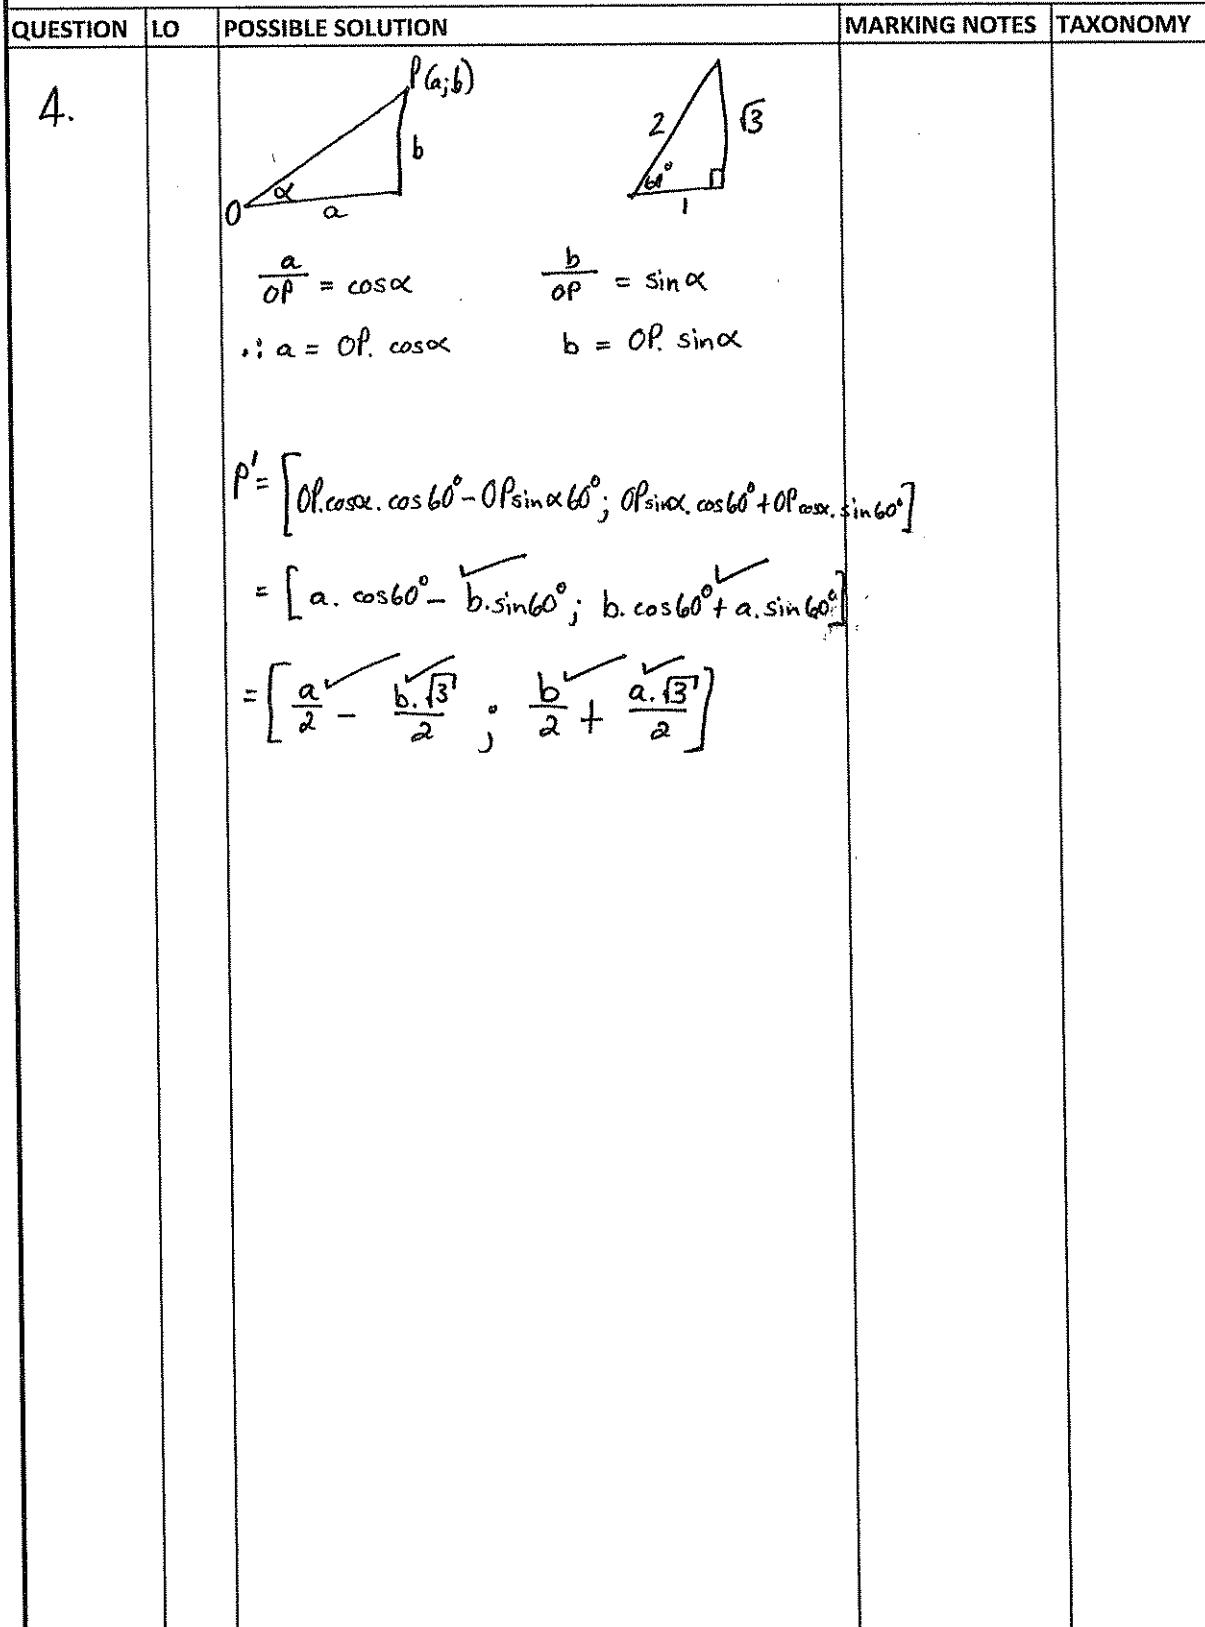 QUESTION LO POSSIBLE SOLUTION MARKING NOTES TAXONOMY
4.
P(a;b)
b
O
α
a
2
√3
60°
1
a/OP = cosα b/OP = sinα
∴ a = OP. cosα b = OP. sinα
P' = [OP.cosα. cos60° - OPsinα60°; OPsinα. cos60° + OPcosα. sin60°]
= [a. cos60° - b.sin60°; b. cos60° + a. sin60°]
= [a/2 - b.√3/2 ; b/2 + a.√3/2]